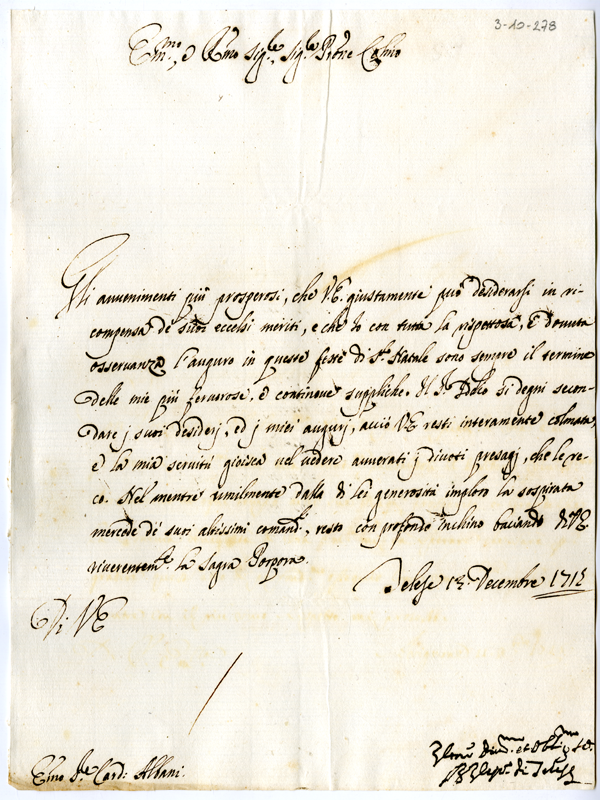 3-10-278
Em.mo e Rmo Sig.re, Sig.re P̃rone Colmo
Gli avvenimenti più prosperosi, che VE. giustamente può desiderarsi in ri-
compensa de' suoi eccelsi meriti, e che Io con tutta la rispettosa, e dovuta
osservanza l'auguro in queste feste di S.to Natale sono sempre il termine
delle mie più fervorose, e continove suppliche. Il S.r Iddio si degni secon-
dare j suoi desiderj, ed j miei augurj, acciò VE resti interamente colmata,
e la mia servitù gioisca nel vedere avverati j divoti presagj, che le re-
co. Nel mentre umilmente dalla di lei generosità imploro la sospirata
mercede de' suoi altissimi comand.i, resto con profondo inchino baciando di VE
riverentem.te la Sagra Porpora.
Telese Decembre
Di VE
Emo S.re Card: Albani.
di Telese